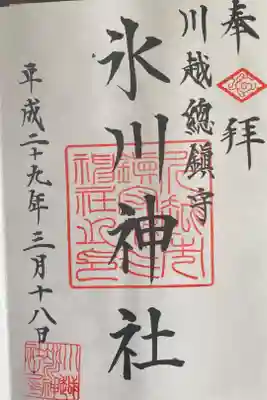 奉拝
川越總鎮守
氷川神社
平成二十九年三月十八日